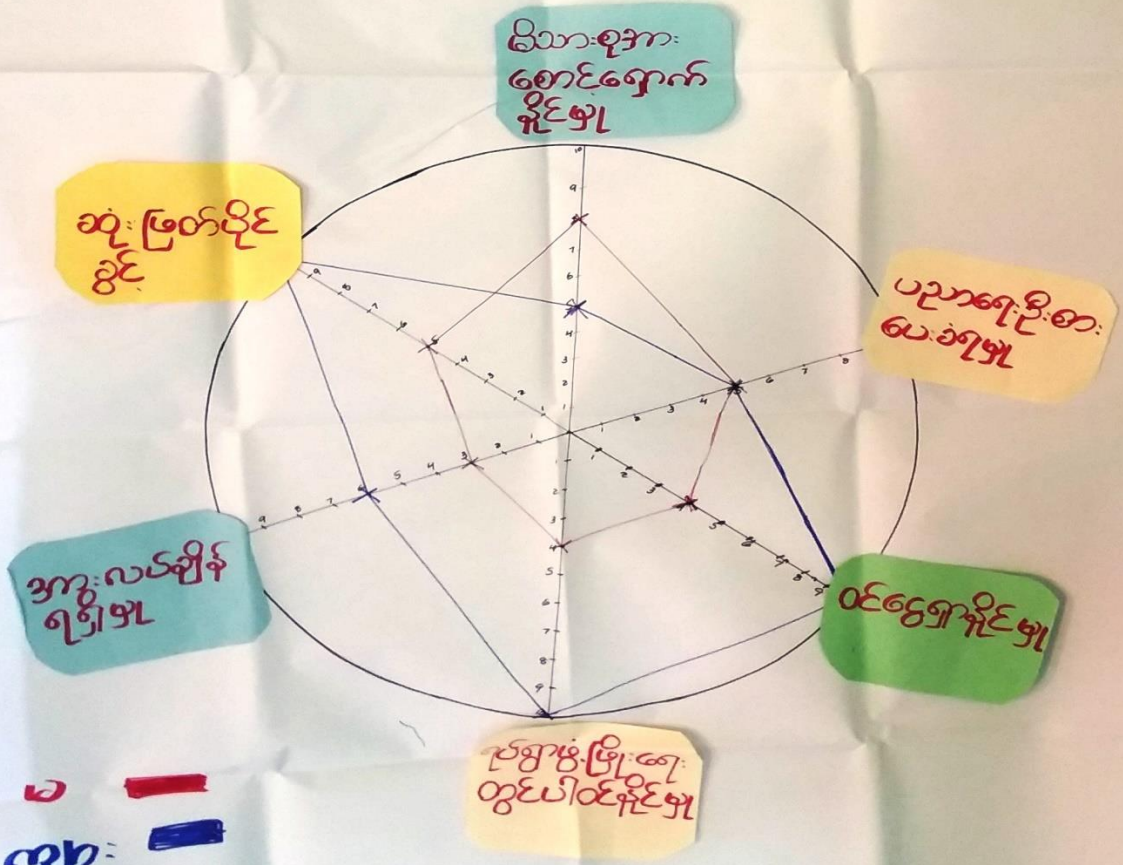 မိသားစုအား
စောင့်ရှောက်
နိုင်မှု
ဆုံးဖြတ်ပိုင်
ခွင့်
ပညာရေးဦးစား
ပေးခံရမှု
အားလပ်ချိန်
ရရှိမှု
ဝင်ငွေရှာနိုင်မှု
ရပ်ရွာဖွံ့ဖြိုးရေး
တွင်ပါဝင်နိုင်မှု
မ
ကျား
10
9
7
6
4
3
2
1
9
8
7
6
5
4
3
2
1
1
2
3
4
5
6
7
8
9
7
6
5
4
3
2
1
1
2
3
5
6
7
8
9
1
2
3
4
5
6
7
8
9